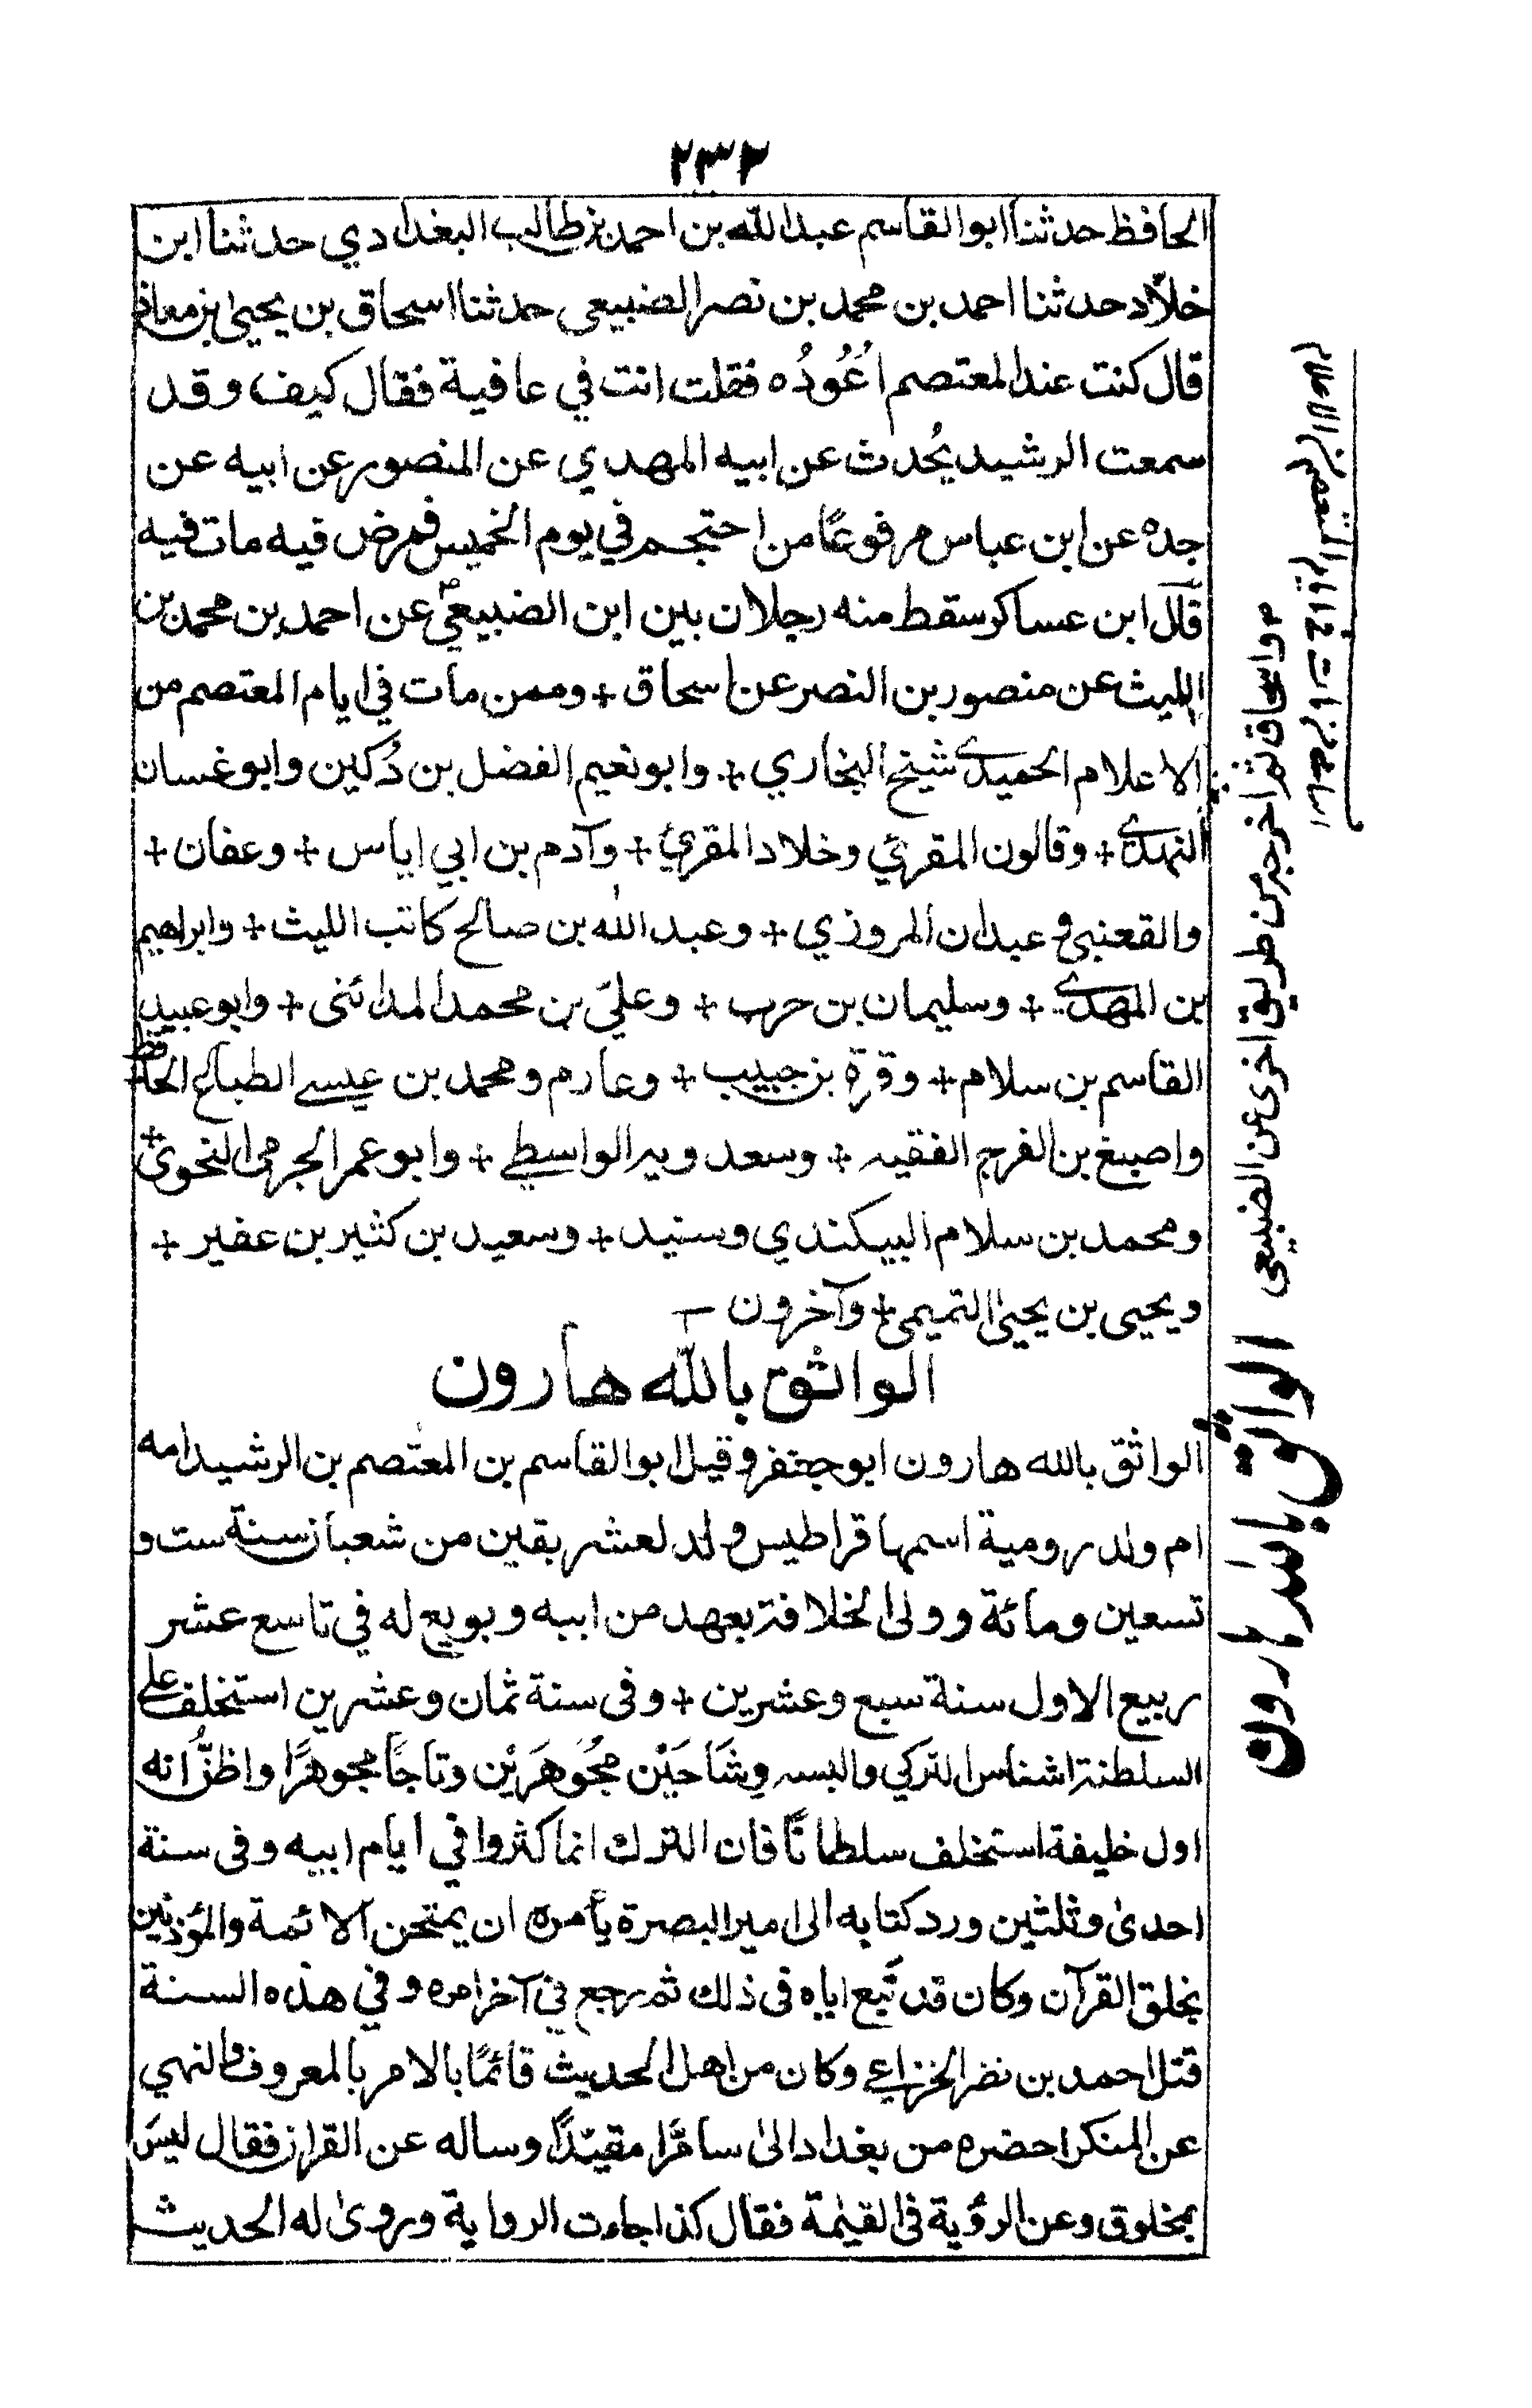 ٢٣٢
الحافظ حدثنا ابو القاسم عبد الله بن احمد بن طالب البغدادي حدثنا ابن
خلاّد حدثنا احمد بن محمد بن نصر الضبيعي حدثنا اسحاق بن يحيىٰ بن معاذ
قال كنت عند المعتصم اَعُوُدُه فقلت انت في عافية فقال كيف وقد
سمعت الرشيد يُحدث عن ابيه المهدي عن المنصور عن ابيه عن
جده عن ابن عباس مرفوعًا من احتجم في يوم الخميس فمرض فيه مات فيه
قال ابن عساكر سقط منه رجلان بين ابن الضبيعي عن احمد بن محمد بن
الليث عن منصور بن النصر عن اسحاق + وممن مات في ايام المعتصم من
الاعلام الحميدي شيخ البخاري + وابو نعيم الفضل بن دُكين وابو غسان
النهدي + وقالون المقرئي وخلاد المقرئ + وآدم بن ابي اياس + وعفان +
والقعنبي وعبدان المروزي + وعبد الله بن صالح كاتب الليث + وابراهيم
بن المهدي + وسليمان بن حرب + وعليّ بن محمد المدائني + وابو عبيد
القاسم بن سلام + وقرة بن حبيب + وعارم ومحمد بن عيسى الطباع الحافظ +
واصبغ بن الفرج الفقيه + وسعدويه الواسطي + وابو عمر الجرمي النحوي +
ومحمد بن سلام البيكندي وسنيد + وسعيد بن كثير بن عفير +
ويحيى بن يحيىٰ التميمي + وآخرون —
الواثق بالله هارون
الواثق بالله هارون ابو جعفر وقيل ابو القاسم بن المعتصم بن الرشيد امه
ام ولد رومية اسمها قراطيس ولد لعشر بقين من شعبان سنة ست و
تسعين ومائة وولى الخلافة بعهد من ابيه وبويع له في تاسع عشر
ربيع الاول سنة سبع وعشرين + وفى سنة ثمان وعشرين استخلف على
السلطنة اشناس التركي والبسه وِشَاحَيْن مُجَوهَرَيْن وتاجًا مجوهرًا واظنُّ انه
اول خليفة استخلف سلطانًا فان الترك انما كثروا في ايام ابيه وفى سنة
احدىٰ وثلثين ورد كتابه الى امير البصرة يأمره ان يمتحن الائمة والمؤذنين
بخلق القرآن وكان قد تبع اباه فى ذلك ثم رجع في آخر امره وفي هذه السنة
قتل احمد بن نصر الخزاعي وكان من اهل الحديث قائمًا بالامر بالمعروف والنهي
عن المنكر احضره من بغداد الىٰ سامرّا مقيّدًا وساله عن القران فقال ليسَ
بمخلوق وعن الرؤية فى القيٰمة فقال كذا جاءت الرواية وروىٰ له الحديث
واسحاق ثم اخرجه من طريق اخرى عن الضبيعي
الواثق بالله هارون